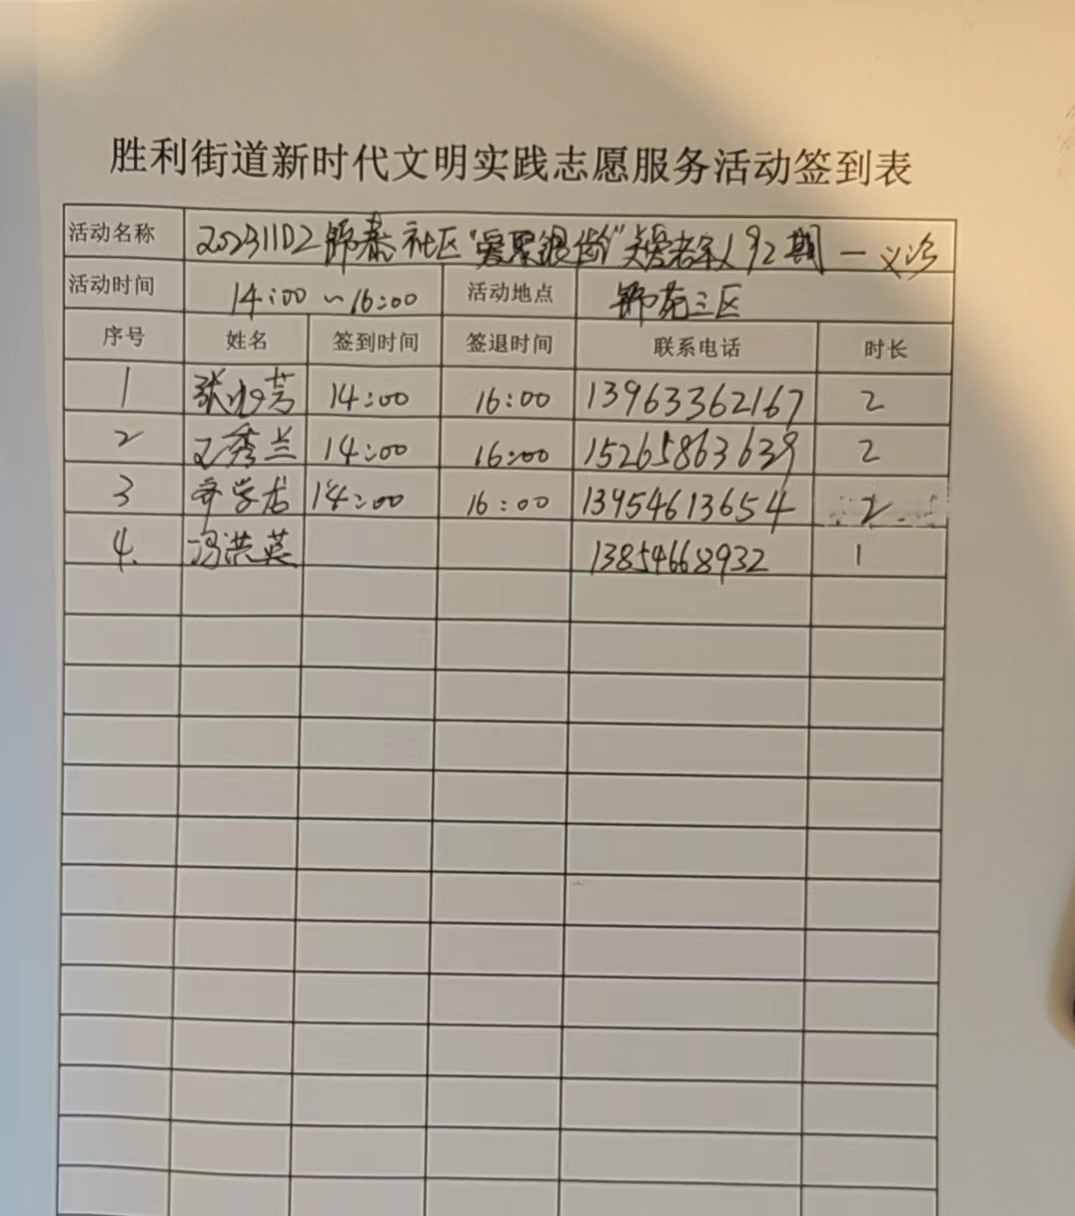 胜利街道新时代文明实践志愿服务活动签到表
活动名称 20231102 锦泰社区"爱聚银龄"关爱老年人92期一义诊
活动时间 14:00~16:00 活动地点 锦苑三区
序号 姓名 签到时间 签退时间 联系电话 时长
1 张 芳 14:00 16:00 13963362167 2
2 王秀兰 14:00 16:00 15265863639 2
3 学 14:00 16:00 13954613654 2
4. 冯洪英 13854668932 1